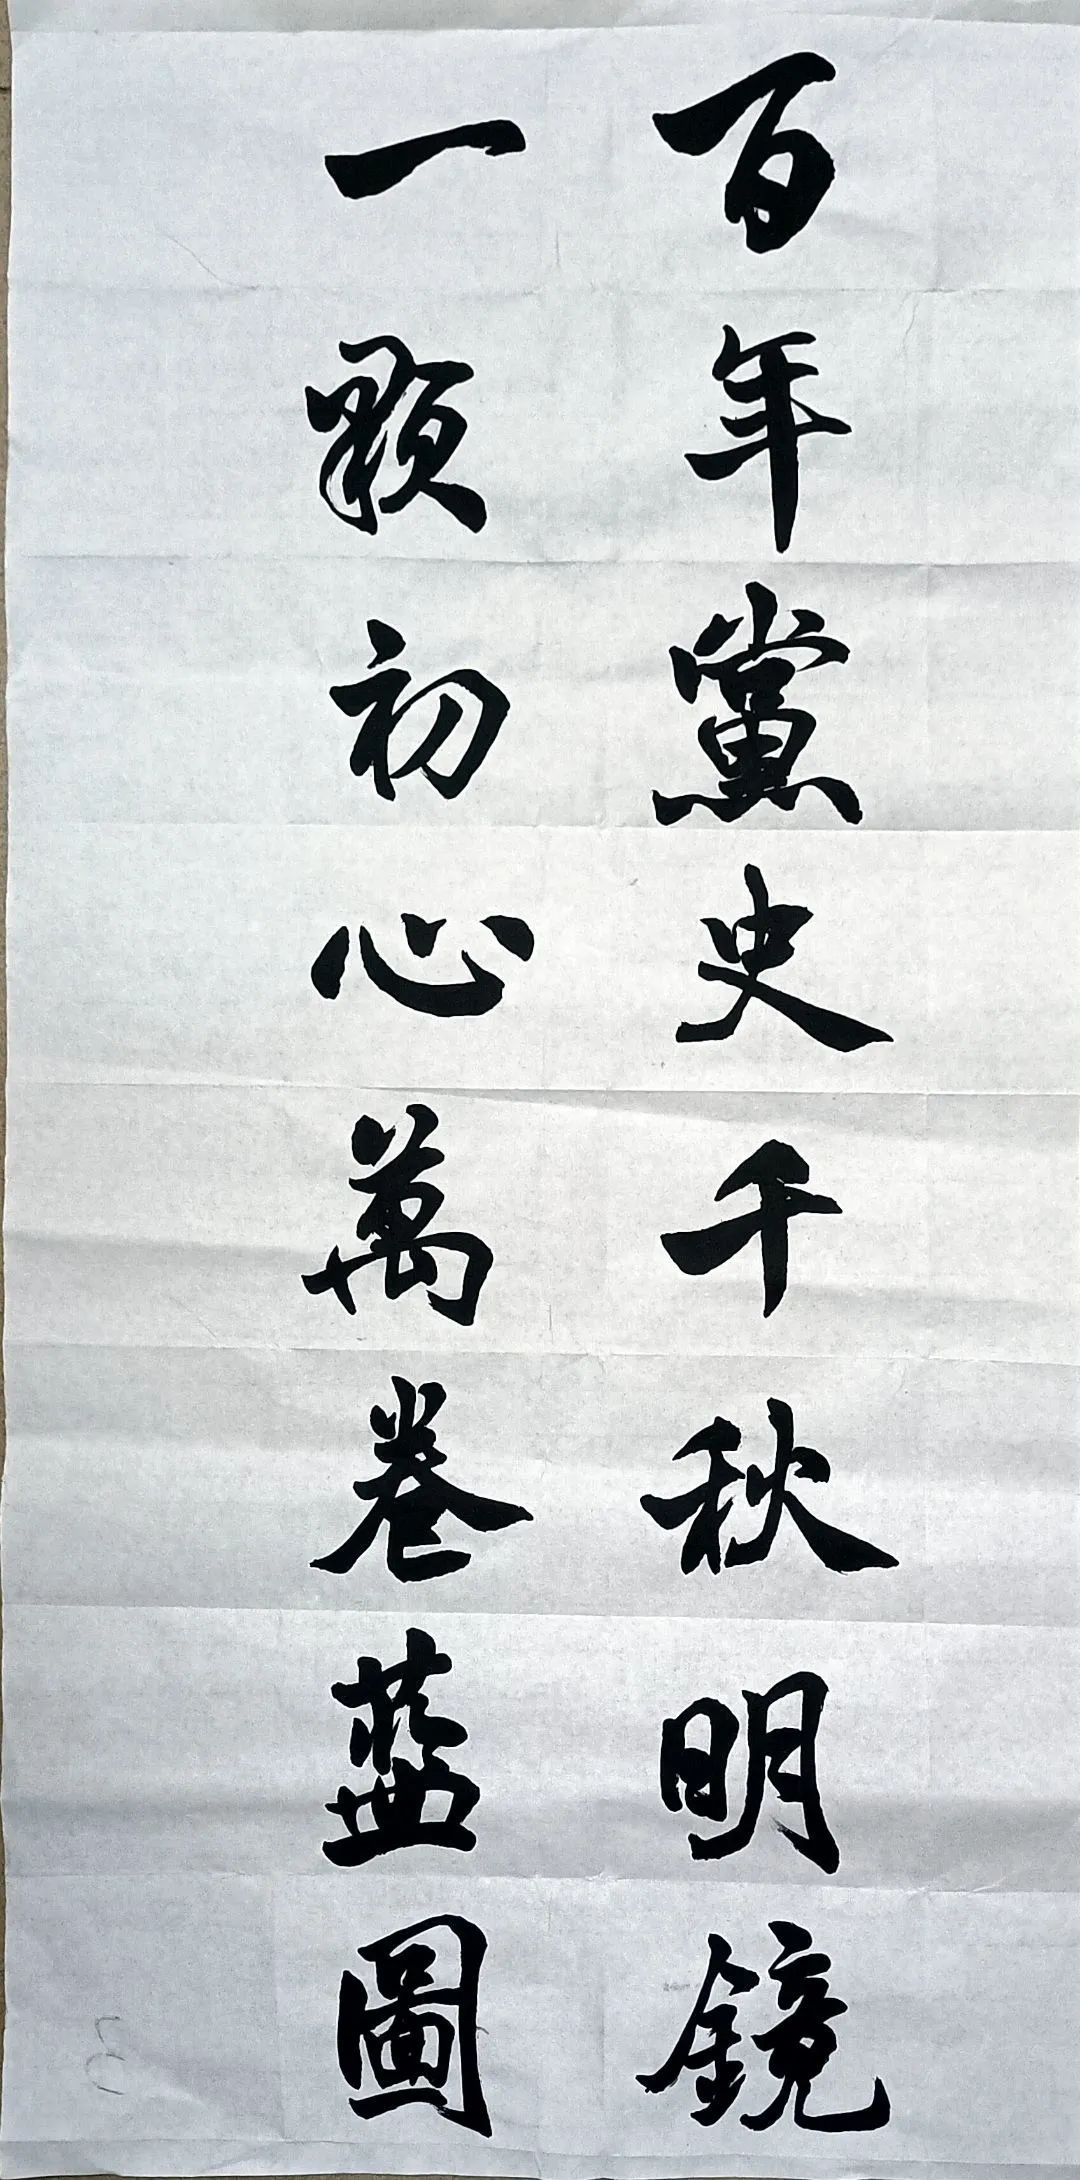 百年黨史千秋明鏡
一顆初心萬卷藍圖